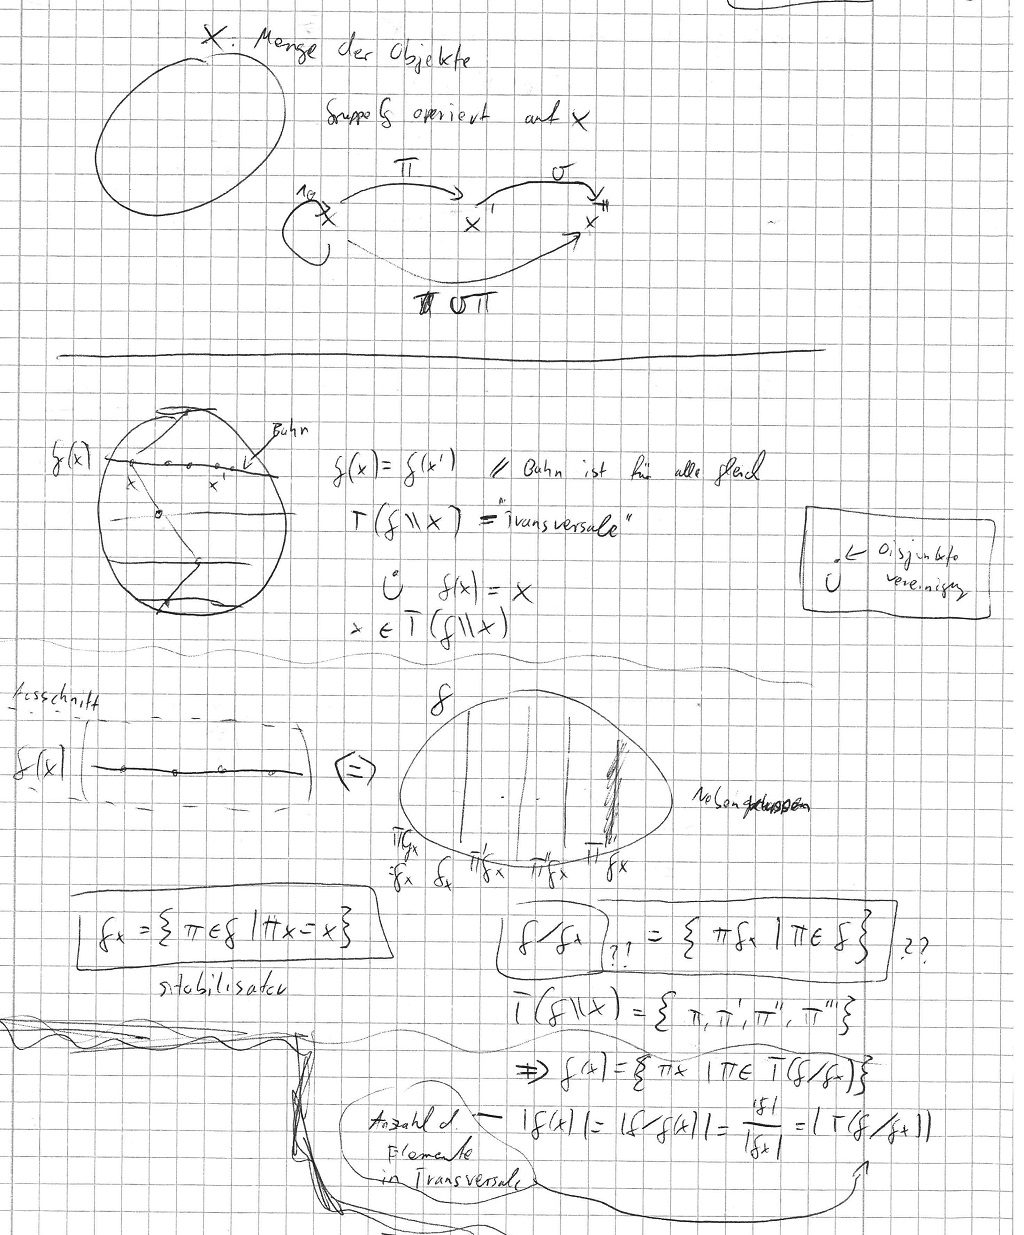 X: Menge der Objekte
Gruppe G operiert auf X
π
σ
1G
x
x'
x''
σπ
Bahn
G(x)
x
x'
G(x) = G(x') // Bahn ist für alle gleich
T(G\\X) = "Transversale"
∪̇ G(x) = X
x ∈ T(G\\X)
∪̇ ← Disjunkte
vereinigung
Ausschnitt
G(x)
⇔
G
Nebengruppen
πGx
=Gx
Gx
π'Gx
π''Gx
π'''Gx
Gx = { π ∈ G | πx = x }
stabilisator
G/Gx ?? = { πGx | π ∈ G } ??
T(G\\X) = { π, π', π'', π''' }
⇒ G(x) = { πx | π ∈ T(G/Gx) }
|G(x)| = |G/G(x)| = |G| / |Gx| = |T(G/Gx)|
Anzahl d
Elemente
in Transversale